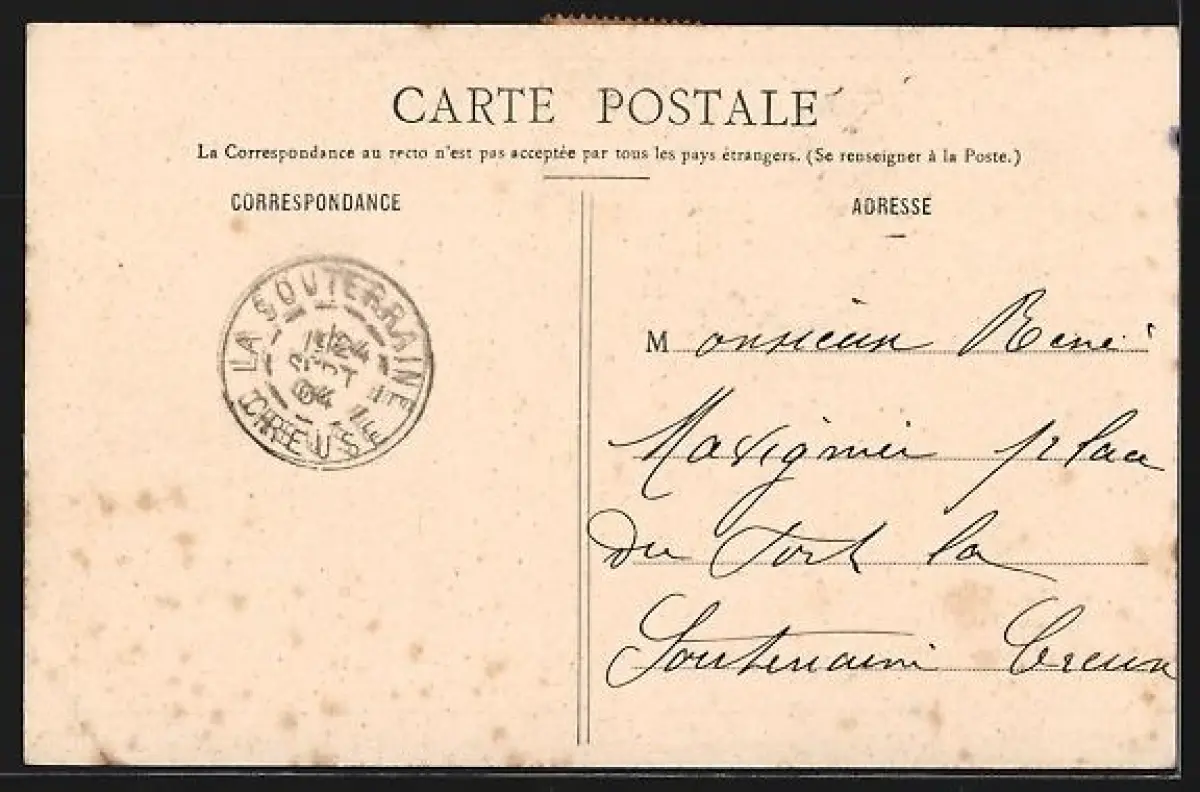 CARTE POSTALE
La Correspondance au recto n'est pas acceptée par tous les pays étrangers. (Se renseigner à la Poste.)
CORRESPONDANCE
ADRESSE
LA SOUTERRAINE
CREUSE
Monsieur René
place
du Fort la
Souterraine Creuse